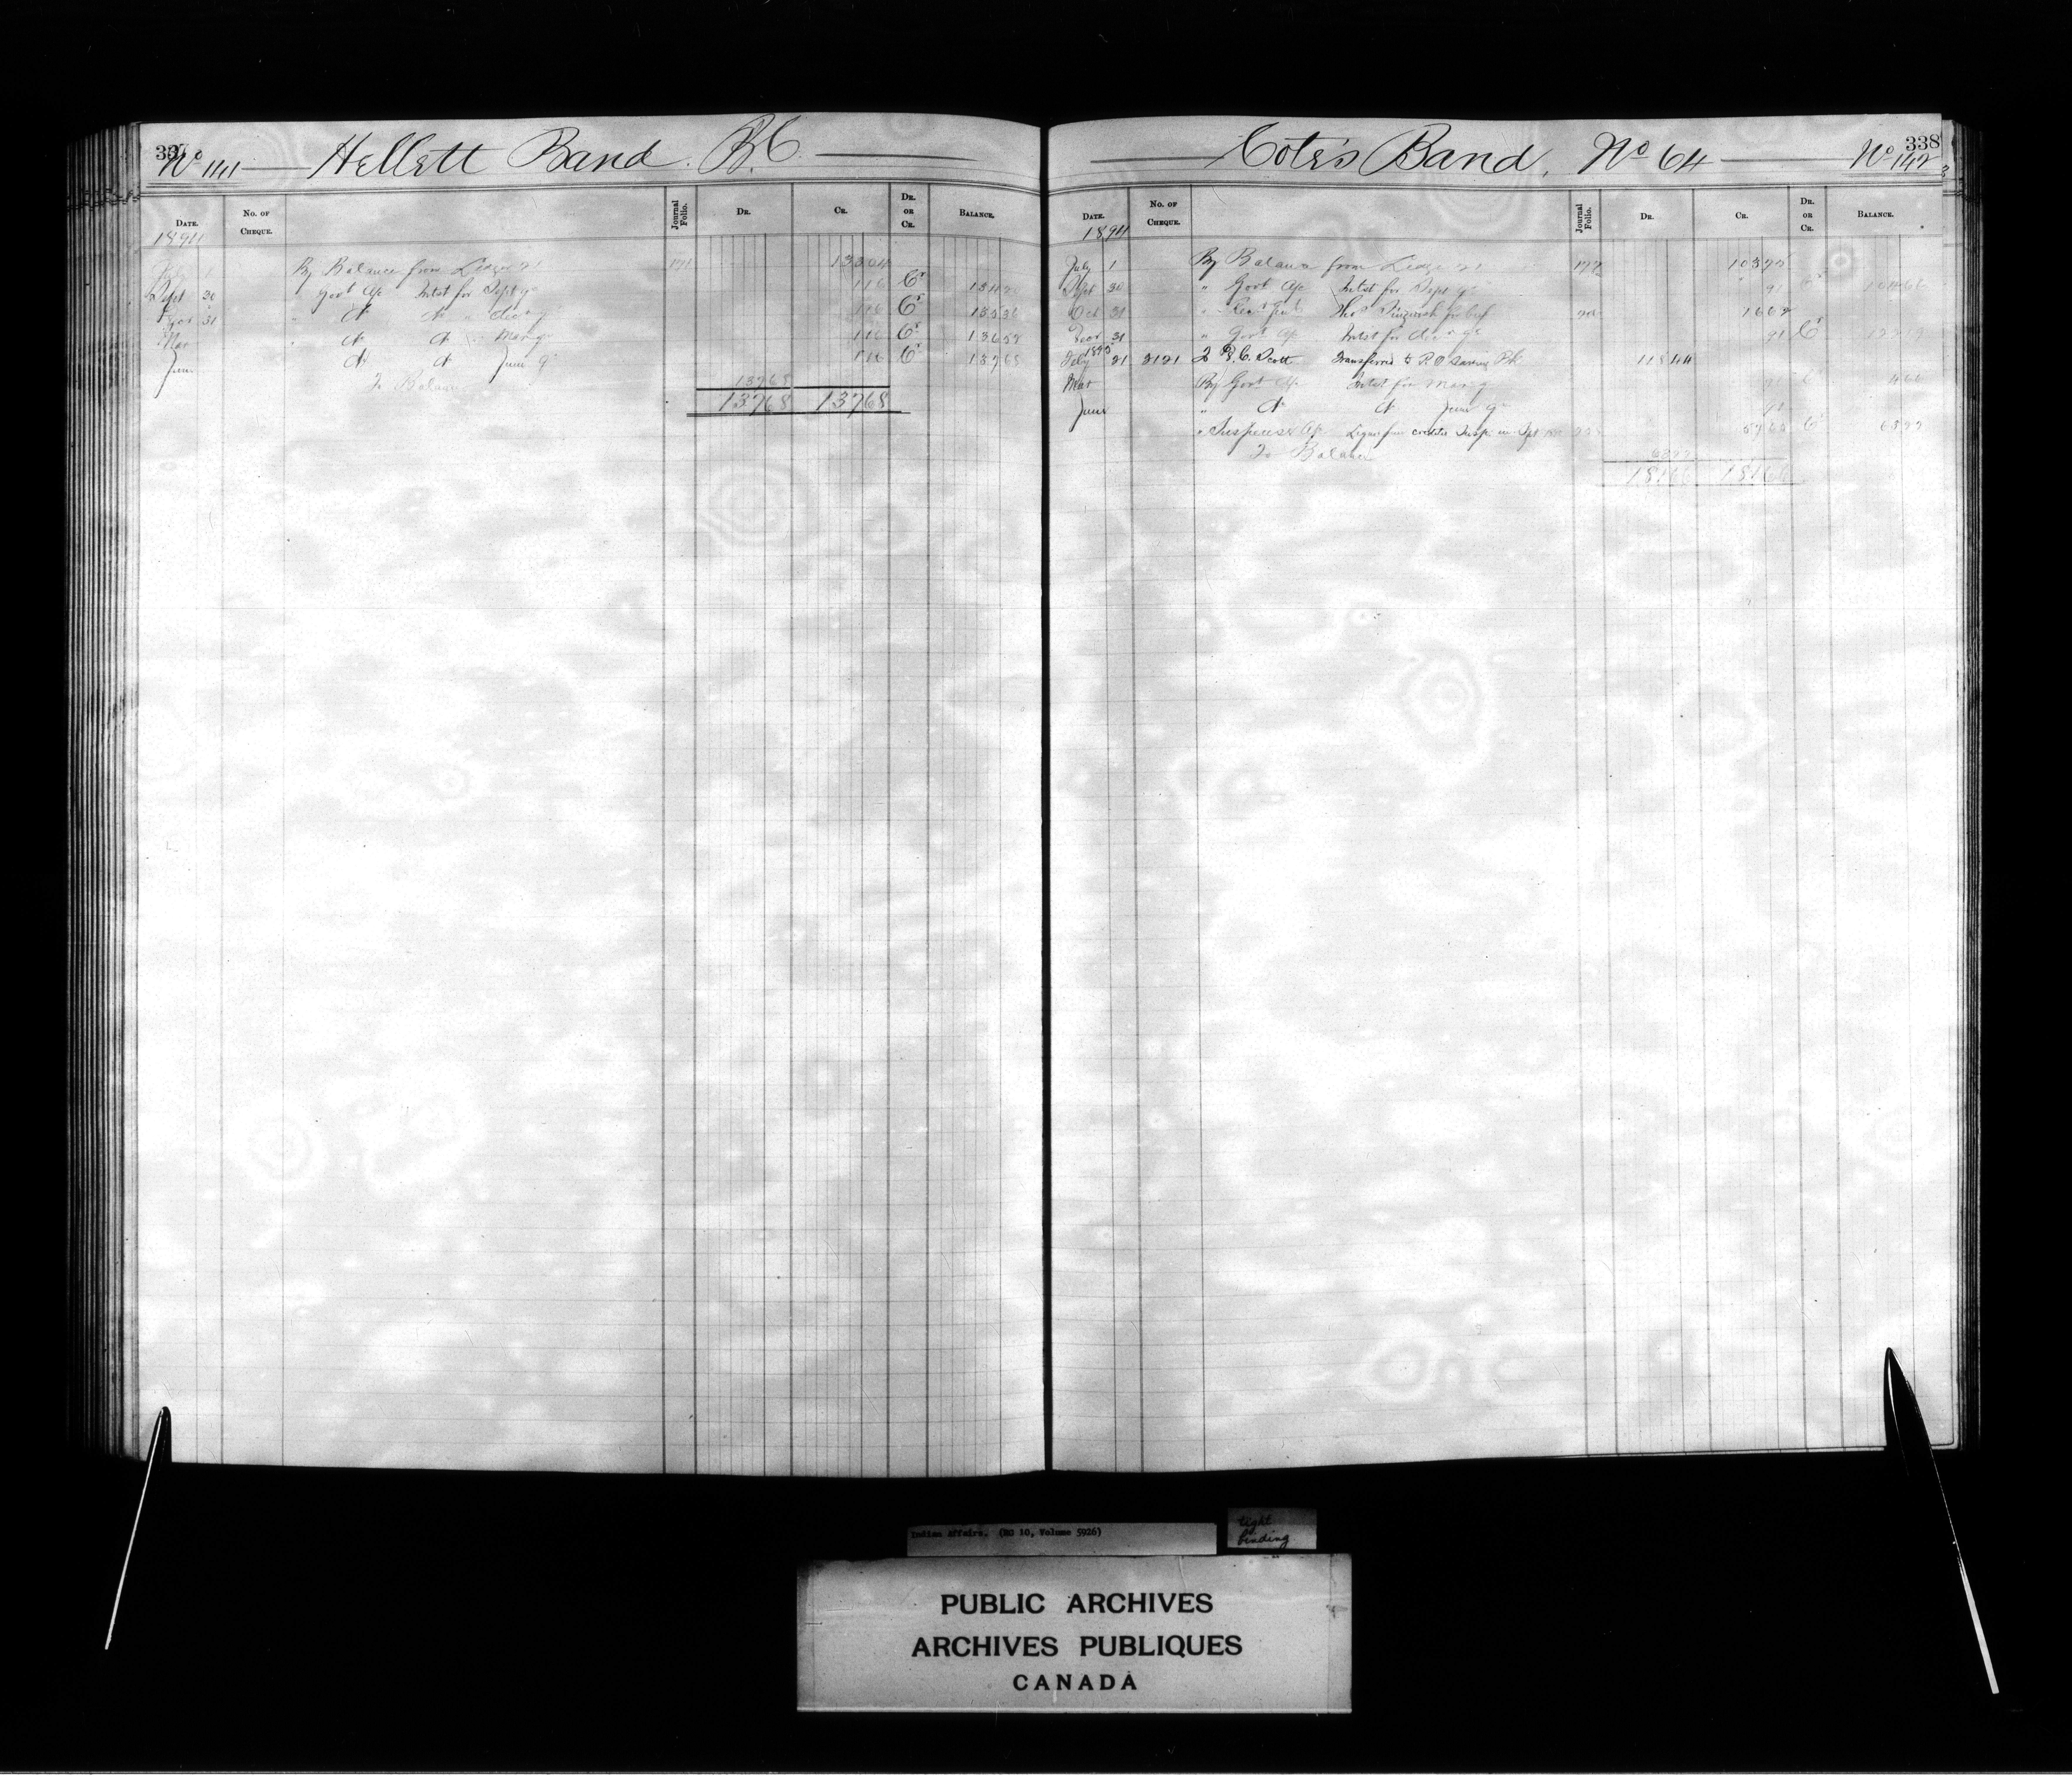 337
No 141 Hellett Band. B.C.
DATE. No. OF CHEQUE. Journal Folio. DR. CR. DR. OR CR. BALANCE.
1894
July 1 By Balance from Ledger 21 171 13304
Sept 30 " Govt a/c Intst for Sept qr 116 Cr 13420
Decr 31 " do do " Decr qr 116 Cr 13536
Mar " do do " Mar qr 116 Cr 13652
June do do June qr 116 Cr 13768
To Balance 13768
13768 13768
338
Cote's Band, No 64 No 142
DATE. No. OF CHEQUE. Journal Folio. DR. CR. DR. OR CR. BALANCE.
1894
July 1 By Balance from Ledger 21 172 10375
Sept 30 " Govt a/c Intst for Sept qr 91 Cr 10466
Oct 31 1602
Decr 31 " Govt a/c Intst for Decr qr 91 Cr
1895
July 31 2121 To D.C. Scott Transferred to P O Saving Bk 11844
Mar By Govt a/c Intst for Mar qr Cr
June " do do June qr
" Suspense a/c Cr
To Balance
18166 18166
Indian Affairs. (RG 10, Volume 5926)
tight
binding
PUBLIC ARCHIVES
ARCHIVES PUBLIQUES
CANADA